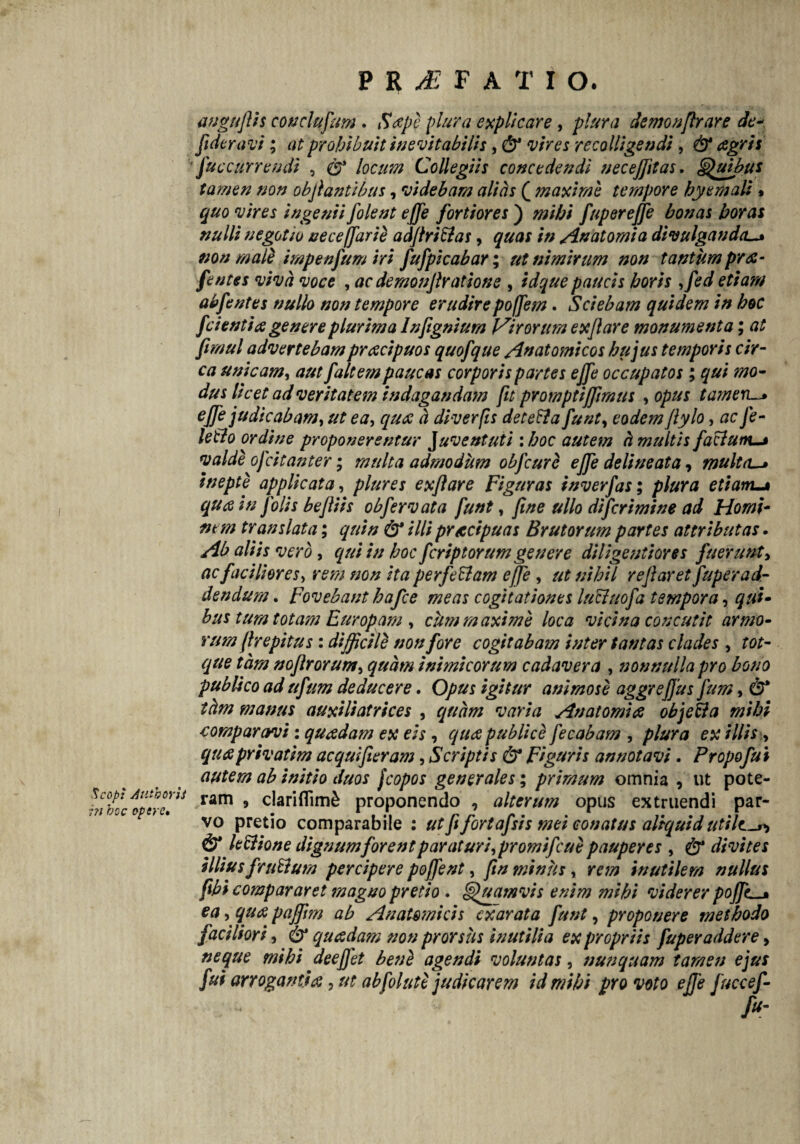 PRÆFATIO.
anguſtis concluſum. Sæpè plura explicare, plura demonſtrare de-
ſideravi; at prohibuit inevitabilis, & vires recolligendi, & ægris
ſuccurrendi, & locum Collegiis concedendi neceſſitas. Quibus
tamen non obſtantibus, videbam aliàs (maximè tempore hyemali,
quo vires ingenii ſolent eſſe fortiores) mihi ſupereſſe bonas horas
nulli negotio neceſſariè adſtrictas, quas in Anatomia divulganda
non malè impenſum iri ſuſpicabar; ut nimirum non tantùm præ-
ſentes vivâ voce, ac demonſtratione, idque paucis horis, ſed etiam
abſentes nullo non tempore erudire poſſem. Sciebam quidem in hoc
ſcientiæ genere plurima Inſignium Virorum exſtare monumenta; at
ſimul advertebam præcipuos quoſque Anatomicos hujus temporis cir-
ca unicam, aut ſaltem paucas corporis partes eſſe occupatos; qui mo-
dus licet ad veritatem indagandam ſit promptiſſimus, opus tamen
eſſe judicabam, ut ea, quæ à diverſis detecta ſunt, eodem ſtylo, ac ſe-
lecto ordine proponerentur Juventuti: hoc autem à multis factum
valdè oſcitanter; multa admodùm obſcurè eſſe delineata, multa
ineptè applicata, plures exſtare Figuras inverſas; plura etiam
quæ in ſolis beſtiis obſervata ſunt, ſine ullo diſcrimine ad Homi-
nem translata; quin & illi præcipuas Brutorum partes attributas.
Ab aliis verò, qui in hoc ſcriptorum genere diligentiores fuerunt,
ac faciliores, rem non ita perfectam eſſe, ut nihil reſtaret ſuperad-
dendum. Fovebant haſce meas cogitationes luctuoſa tempora, qui-
bus tum totam Europam, cùm maximè loca vicina concutit armo-
rum ſtrepitus: difficilè non fore cogitabam inter tantas clades, tot-
que tàm noſtrorum, quàm inimicorum cadavera, nonnulla pro bono
publico ad uſum deducere. Opus igitur animosè aggreſſus ſum, &
tàm manus auxiliatrices, quàm varia Anatomiæ objecta mihi
comparavi: quædam ex eis, quæ publicè ſecabam, plura ex illis,
quæ privatim acquiſieram, Scriptis & Figuris annotavi. Propoſui
autem ab initio duos ſcopos generales; primum omnia, ut pote-
Scopi Authoris
in hoc opere.
ram, clariſſimè proponendo, alterum opus extruendi par-
vo pretio comparabile: ut ſi fortaſsis mei conatus aliquid utile,
& lectione dignum forent paraturi, promiſcuè pauperes, & divites
illius fructum percipere poſſent, ſin minùs, rem inutilem nullus
ſibi compararet magno pretio. Quamvis enim mihi viderer poſſe
ea, quæ paſſim ab Anatomicis exarata ſunt, proponere methodo
faciliori, & quædam non prorsùs inutilia ex propriis ſuperaddere,
neque mihi deeſſet benè agendi voluntas, nunquam tamen ejus
fui arrogantiæ, ut abſolutè judicarem id mihi pro voto eſſe ſucceſ-
ſu-